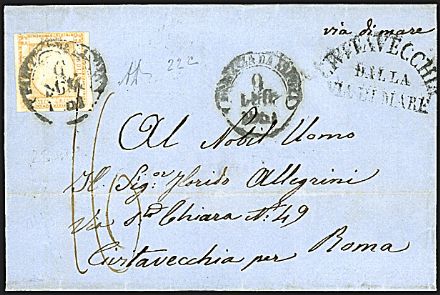 via di mare
22c
9
LUG
CIVITAVECCHIA
DALLA
VIA DI MARE
9
LUG
Al Nobil Uomo
Il Sigor Florido Allegrini
Via Sta Chiara N. 49
Civitavecchia per Roma